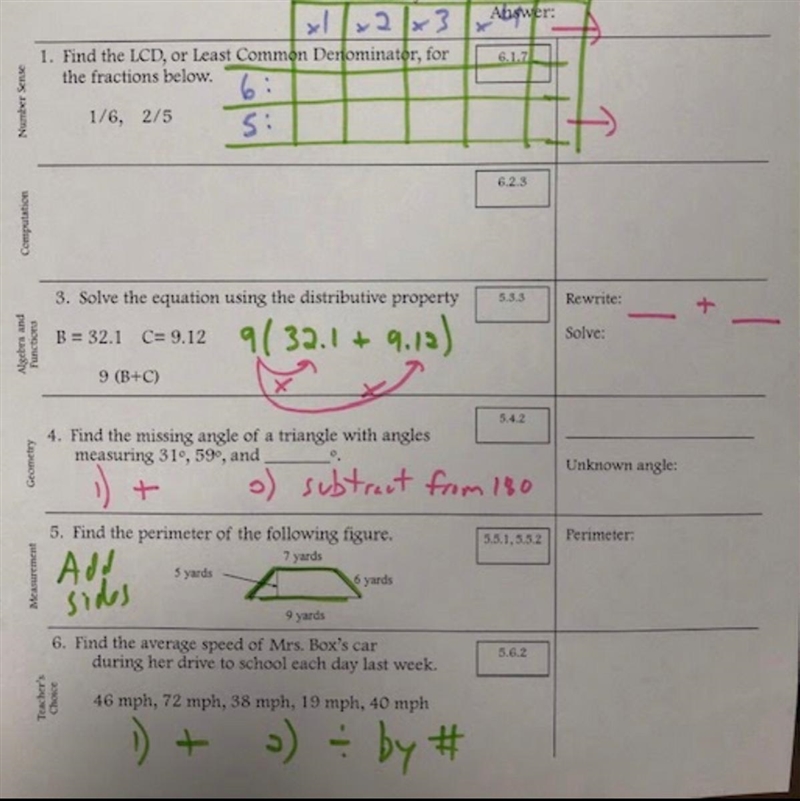 Answer:
x1 x2 x3 x4
1. Find the LCD, or Least Common Denominator, for
the fractions below.
6.1.7
6:
1/6, 2/5
5:
Number Sense
6.2.3
Computation
3. Solve the equation using the distributive property
5.3.3
Rewrite: ___ + ___
B = 32.1 C= 9.12
9(32.1 + 9.12)
Solve:
x x
9 (B+C)
Algebra and
Functions
5.4.2
4. Find the missing angle of a triangle with angles
measuring 31°, 59°, and ______°.
Unknown angle:
1) + 2) subtract from 180
Geometry
5. Find the perimeter of the following figure.
5.5.1, 5.5.2
Perimeter:
Add
sides
7 yards
5 yards
6 yards
9 yards
Measurement
6. Find the average speed of Mrs. Box's car
during her drive to school each day last week.
5.6.2
46 mph, 72 mph, 38 mph, 19 mph, 40 mph
1) + 2) ÷ by #
Teacher's
Choice